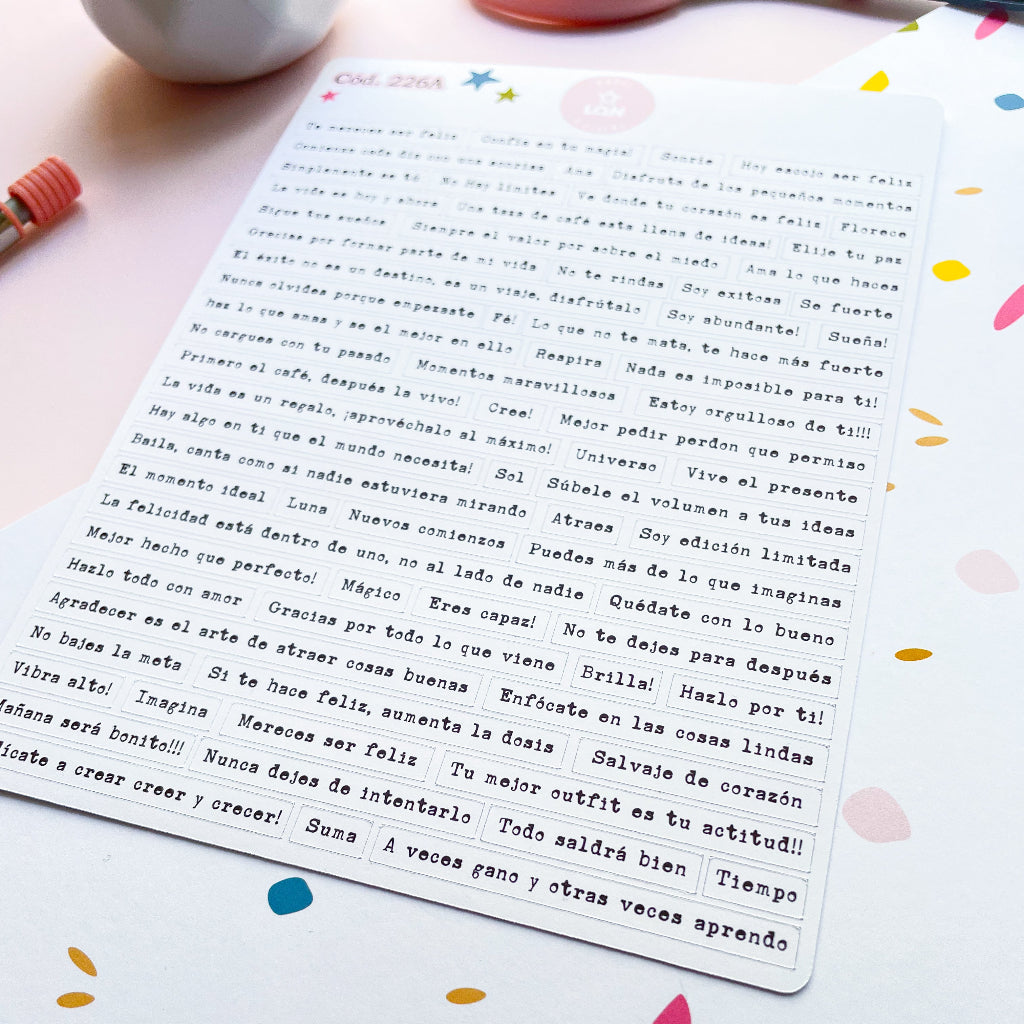 Cód. 226A
LDN
Te mereces ser feliz Confía en tu magia! Sonríe Hoy escojo ser feliz
Comienza cada día con una sonrisa Ama Disfruta de los pequeños momentos
Simplemente se tú No Hay límites Ve donde tu corazón es feliz Florece
La vida es hoy y ahora Una taza de café esta llena de ideas! Elije tu paz
Sigue tus sueños Siempre el valor por sobre el miedo Ama lo que haces
Gracias por formar parte de mi vida No te rindas Soy exitosa Se fuerte
El éxito no es un destino, es un viaje, disfrútalo Soy abundante! Sueña!
Nunca olvides porque empezaste Fé! Lo que no te mata, te hace más fuerte
haz lo que amas y se el mejor en ello Respira Nada es imposible para ti!
No cargues con tu pasado Momentos maravillosos Estoy orgulloso de ti!!!
Primero el café, después la vivo! Cree! Mejor pedir perdon que permiso
La vida es un regalo, ¡aprovéchalo al máximo! Universo Vive el presente
Hay algo en ti que el mundo necesita! Sol Súbele el volumen a tus ideas
Baila, canta como si nadie estuviera mirando Atraes Soy edición limitada
El momento ideal Luna Nuevos comienzos Puedes más de lo que imaginas
La felicidad está dentro de uno, no al lado de nadie Quédate con lo bueno
Mejor hecho que perfecto! Mágico Eres capaz! No te dejes para después
Hazlo todo con amor Gracias por todo lo que viene Brilla! Hazlo por ti!
Agradecer es el arte de atraer cosas buenas Enfócate en las cosas lindas
No bajes la meta Si te hace feliz, aumenta la dosis Salvaje de corazón
Vibra alto! Imagina Mereces ser feliz Tu mejor outfit es tu actitud!!
Mañana será bonito!!! Nunca dejes de intentarlo Todo saldrá bien Tiempo
a crear creer y crecer! Suma A veces gano y otras veces aprendo